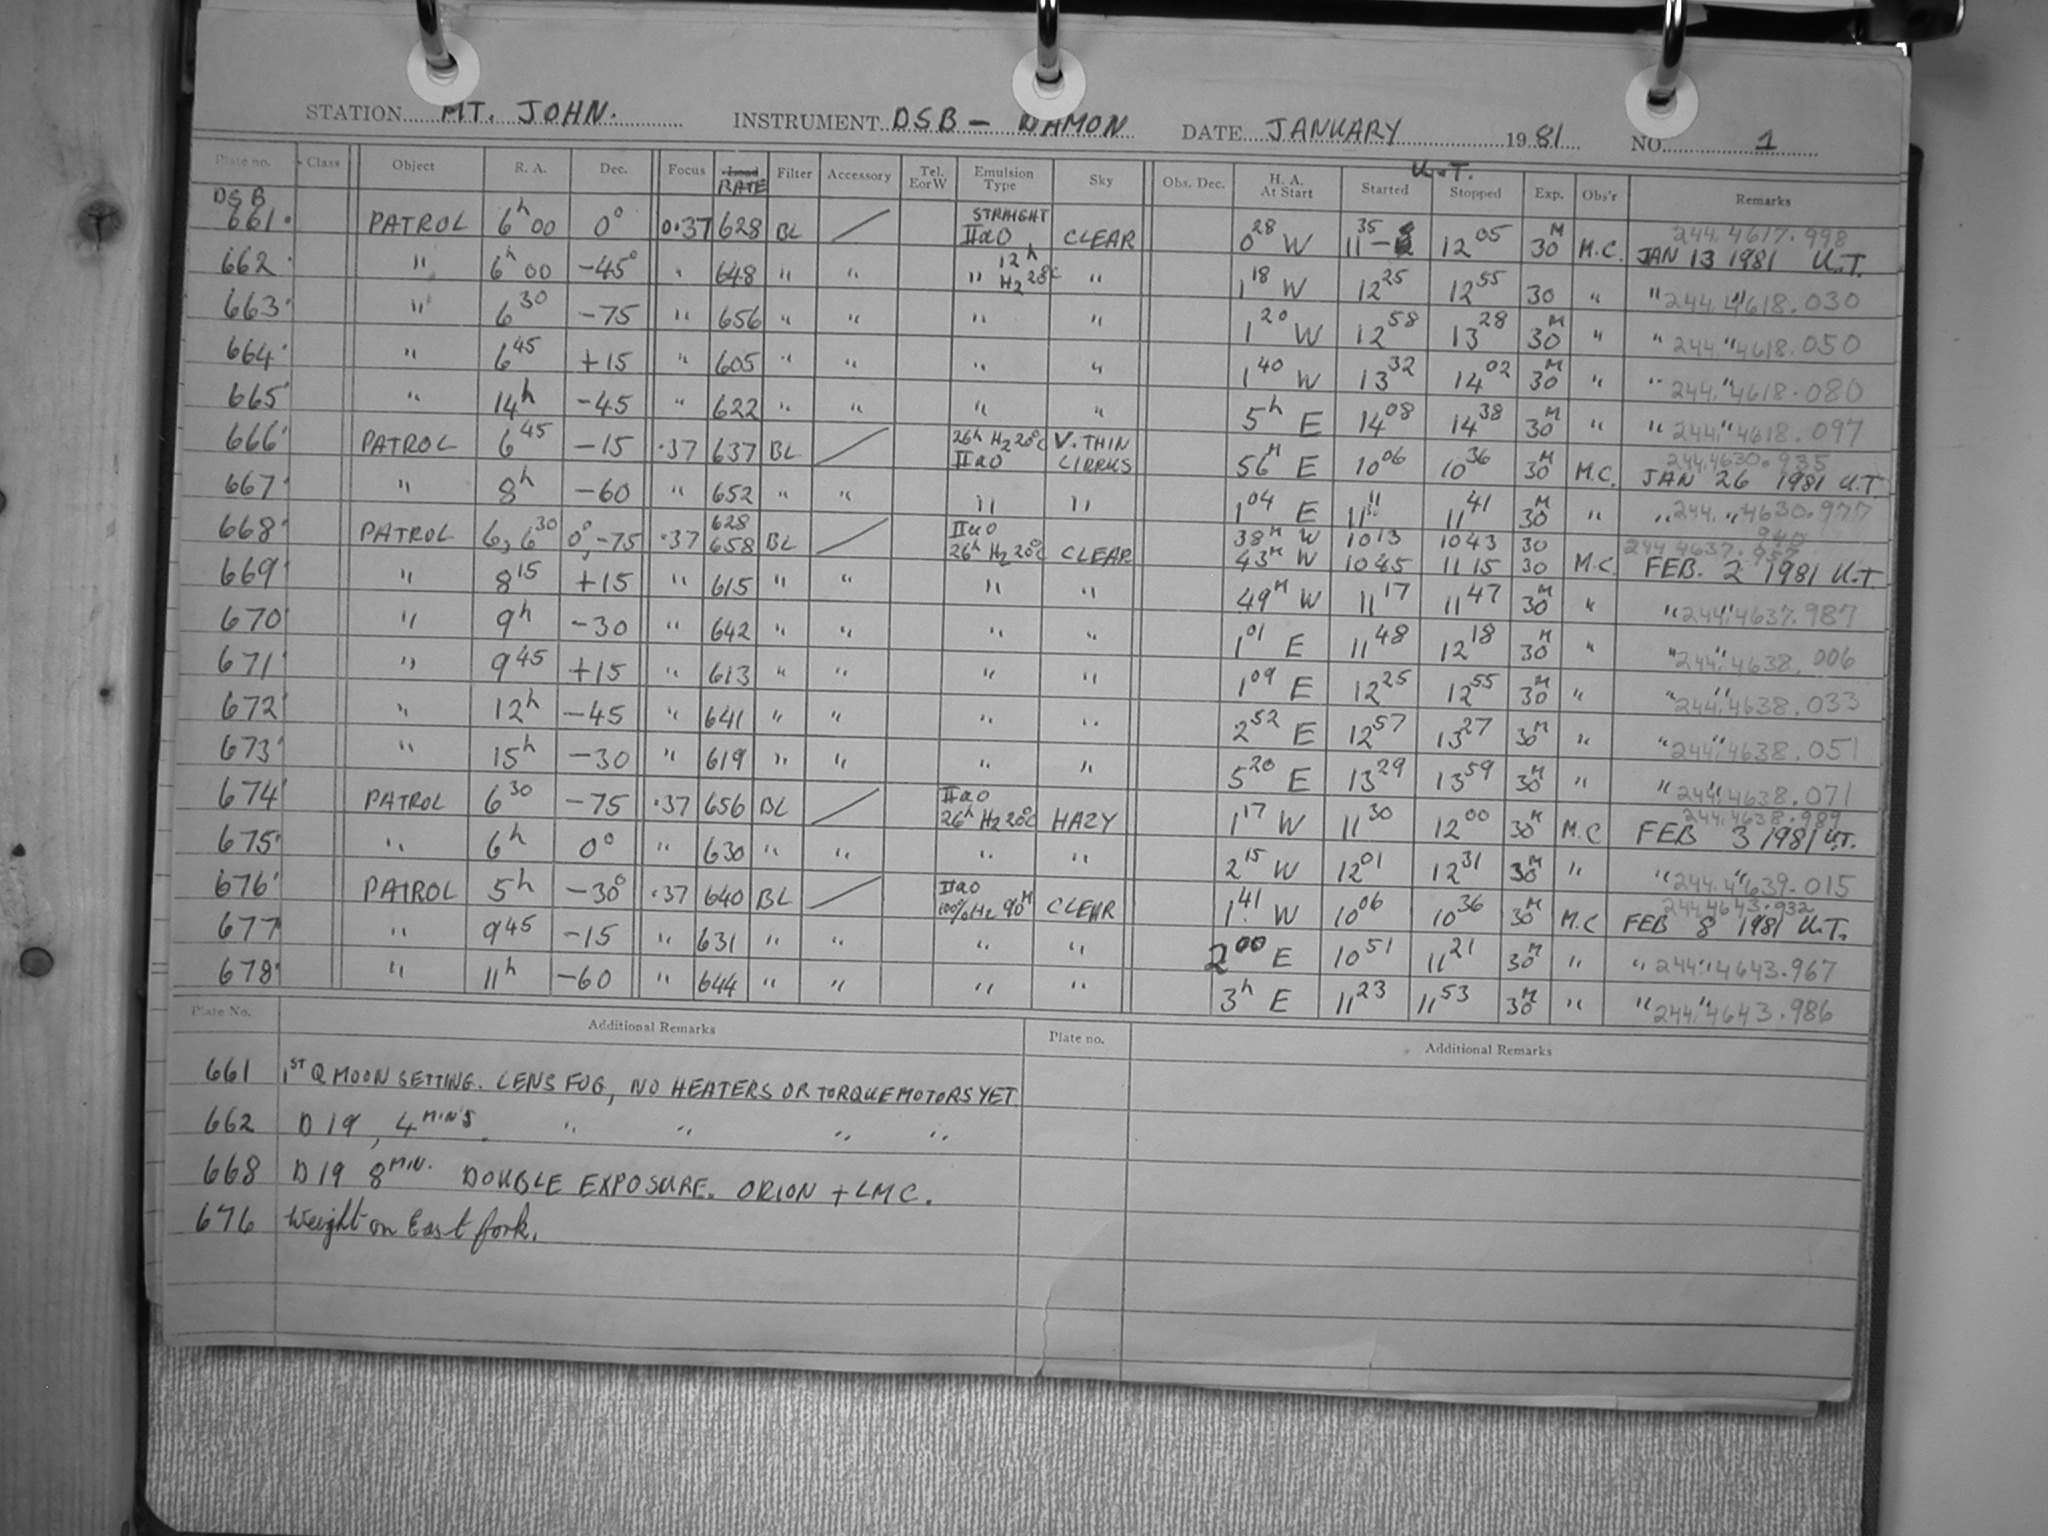 STATION MT. JOHN. INSTRUMENT DSB - DAMON DATE JANUARY 1981 NO. 1
Plate no. Class Object R. A. Dec. Focus Load RATE Filter Accessory Tel. E or W Emulsion Type Sky Obs. Dec. H. A. At Start U.T. Started Stopped Exp. Obs'r Remarks
DSB 661 PATROL 6h 00 0° 0.37 628 BL STRAIGHT IIaO CLEAR 0 28 W 11 35 12 05 30M M.C. 244.4617.998 JAN 13 1981 U.T.
662 " 6h 00 -45° " 648 " " 12h " H2 28°C " 1 18 W 12 25 12 55 30 " " 244."4618.030
663 " 6 30 -75 " 656 " " " " 1 20 W 12 58 13 28 30M " " 244."4618.050
664 " 6 45 +15 " 605 " " " " 1 40 W 13 32 14 02 30M " " 244."4618.080
665 " 14h -45 " 622 " " " " 5h E 14 08 14 38 30M " " 244."4618.097
666 PATROL 6 45 -15 .37 637 BL 26h H2 20°C IIaO V. THIN CIRRUS 56M E 10 06 10 36 30M M.C. 244.4630.935 JAN 26 1981 U.T.
667 " 8h -60 " 652 " " " " 1 04 E 11 11 11 41 30M " " 244."4630.977
668 PATROL 6, 6 30 0°, -75 .37 628 658 BL IIaO 26h H2 20°C CLEAR 38M W 10 13 10 43 30 940
43M W 10 45 11 15 30 M.C. 244 4637. FEB. 2 1981 U.T
669 " 8 15 +15 " 615 " " " " 49M W 11 17 11 47 30M " " 244."4637.987
670 " 9h -30 " 642 " " " " 1 01 E 11 48 12 18 30M " " 244."4638.006
671 " 9 45 +15 " 613 " " " " 1 09 E 12 25 12 55 30M " " 244."4638.033
672 " 12h -45 " 641 " " " " 2 52 E 12 57 13 27 30M " " 244."4638.051
673 " 15h -30 " 619 " " " " 5 20 E 13 29 13 59 30M " " 244."4638.071
674 PATROL 6 30 -75 .37 656 BL IIaO 26h H2 20°C HAZY 1 17 W 11 30 12 00 30M M.C 244.4638.989 FEB 3 1981 U.T.
675 " 6h 0° " 630 " " " " 2 15 W 12 01 12 31 30M " " 244."4639.015
676 PATROL 5h -30° .37 640 BL IIaO 100% H2 90M CLEAR 1 41 W 10 06 10 36 30M M.C 244.4643.932 FEB 8 1981 U.T.
677 " 9 45 -15 " 631 " " " " 2 00 E 10 51 11 21 30M " " 244."4643.967
678 " 11h -60 " 644 " " " " 3h E 11 23 11 53 30M " " 244."4643.986
Plate No. Additional Remarks Plate no. Additional Remarks
661 1ST Q MOON SETTING. LENS FOG, NO HEATERS OR TORQUE MOTORS YET.
662 D19, 4 MIN'S. " " " "
668 D19 8 MIN. DOUBLE EXPOSURE. ORION + LMC.
676 Weight on East fork.